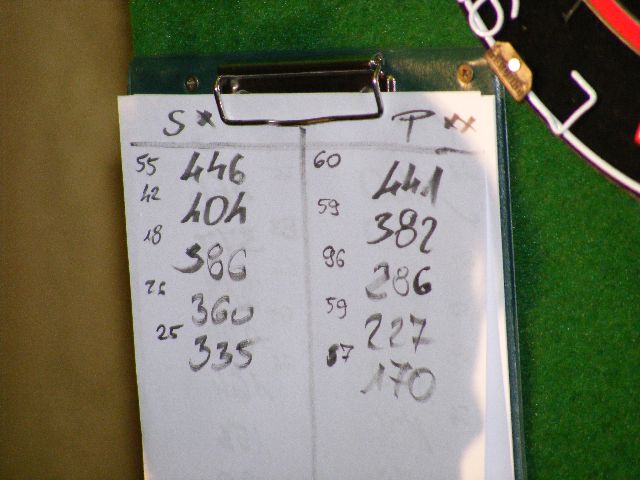 S * P **
55 446 60 441
42 404 59 382
18 386 96 286
26 360 59 227
25 335 57 170